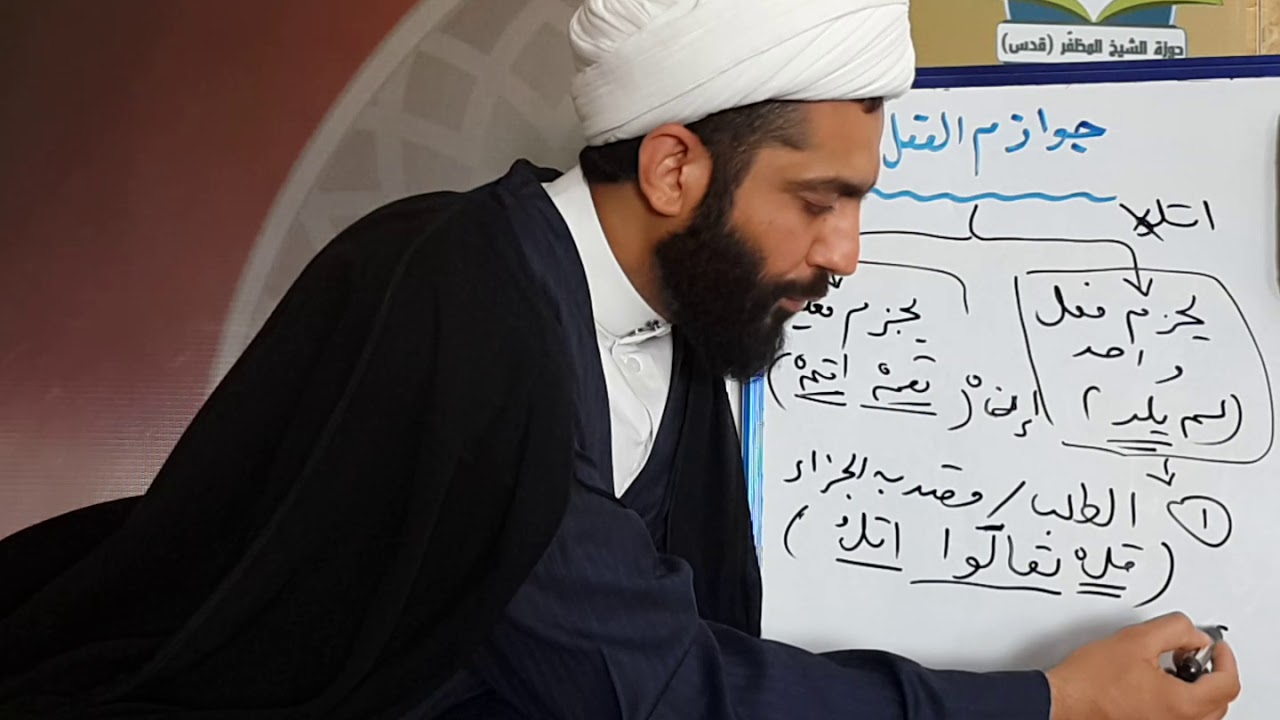 حوزة الشيخ المظفّر (قدس)
جوازم الفعل
اتلو
يجزم فعل
واحد
(لم يلد)
يجزم
إنْ (تقمْ اقمْ)
① الطلب / وقصد به الجزاء
(قلْ تعالَوا اتلُ)